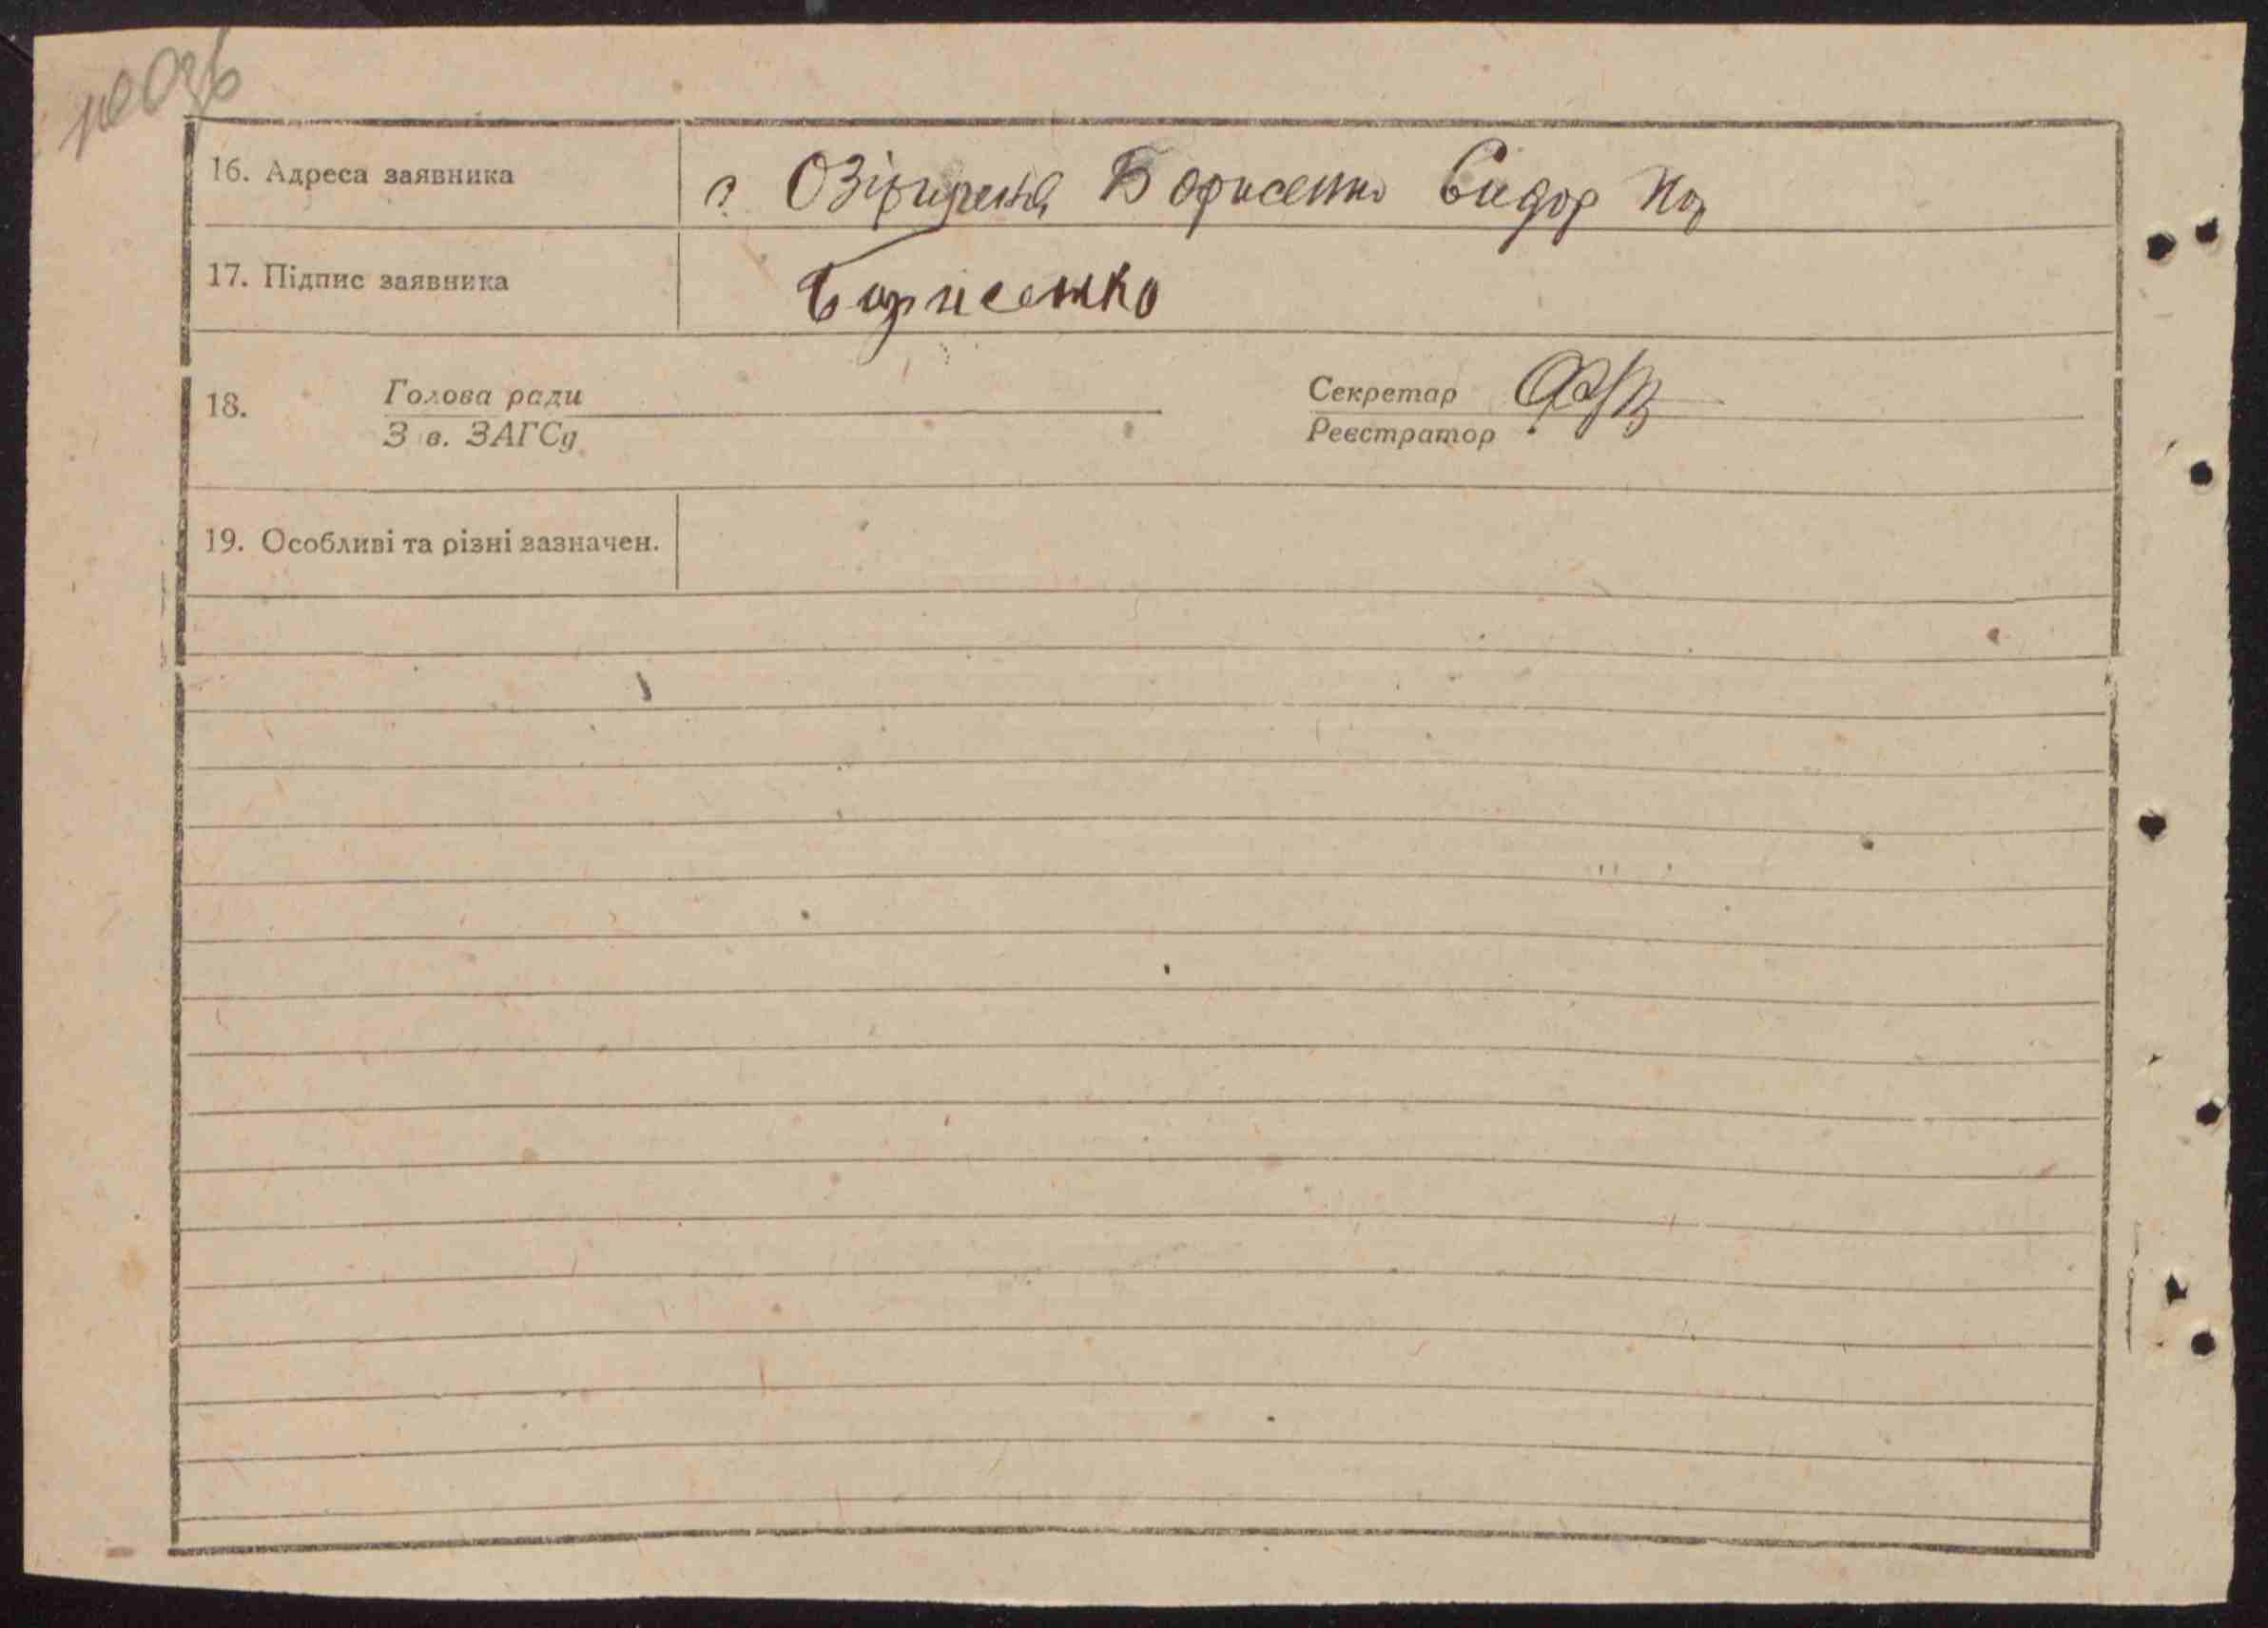 16. Адреса заявника с. Озіряна Борисенко Сидор
17. Підпис заявника Борисенко
18. Голова ради Секретар
Зав. ЗАГСу Реєстратор
19. Особливі та різні зазначен.